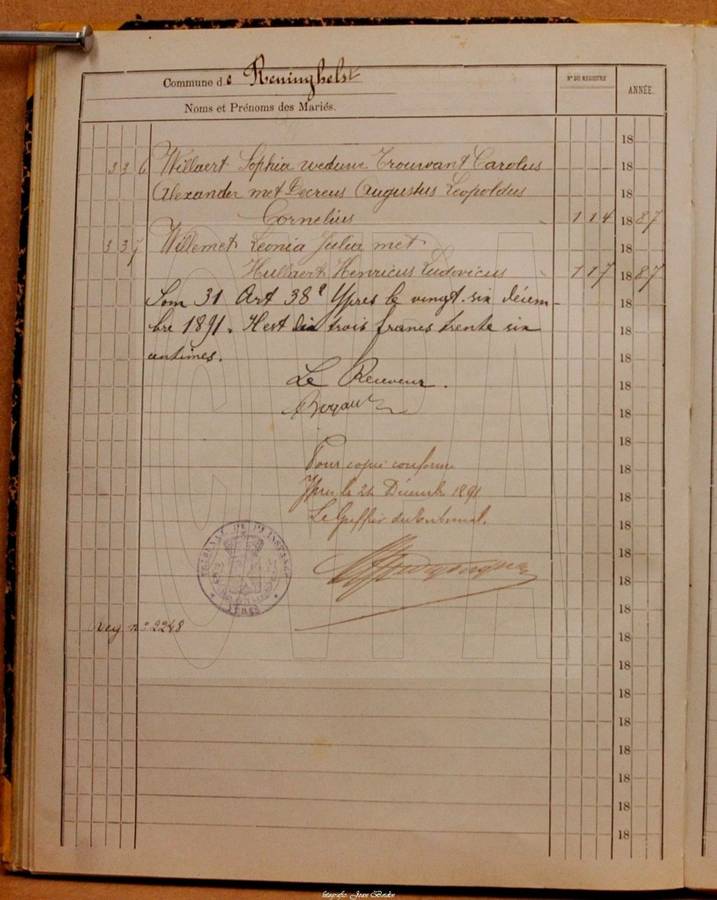 Commune de Reninghelst
Noms et Prénoms des Mariés.
N° DU REGISTRE
ANNÉE.
18
336 Willaert Sophia weduwe Trouwant Carolus 18
Alexander met Decreus Augustus Leopoldus 18
Cornelius 114 1887
337 Willemet Leonia Julia met 18
Hullaert Henricus Ludovicus 117 1887
Som 31 Art 38e Ypres le vingt-six décem- 18
bre 1891. trois francs trente six 18
centimes. 18
Le Receveur. 18
18
18
Pour copie conforme 18
Ypres le 26 Décembre 1891 18
Le Greffier du tribunal. 18
18
TRIBUNAL DE 1re INSTANCE
YPRES
18
18
Reg n° 2248 18
18
18
18
18
18
18
18
fotografie: Joan Bedin